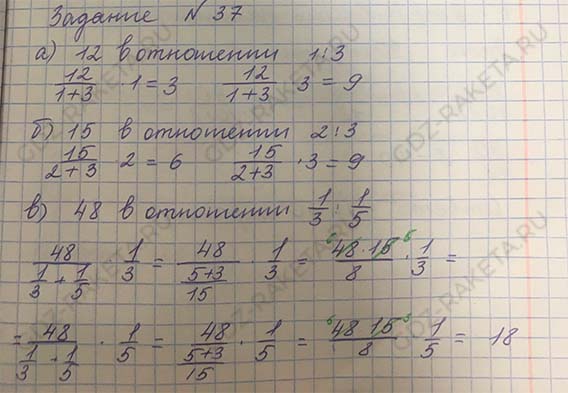 Задание № 37
а) 12 в отношении 1:3
12/(1+3) · 1 = 3   12/(1+3) · 3 = 9
б) 15 в отношении 2:3
15/(2+3) · 2 = 6   15/(2+3) · 3 = 9
в) 48 в отношении 1/3 : 1/5
48/(1/3 + 1/5) · 1/3 = 48/((5+3)/15) · 1/3 = (48·15)/8 · 1/3 =
= 48/(1/3 + 1/5) · 1/5 = 48/((5+3)/15) · 1/5 = (48·15)/8 · 1/5 = 18
GDZ-RAKETA.RU